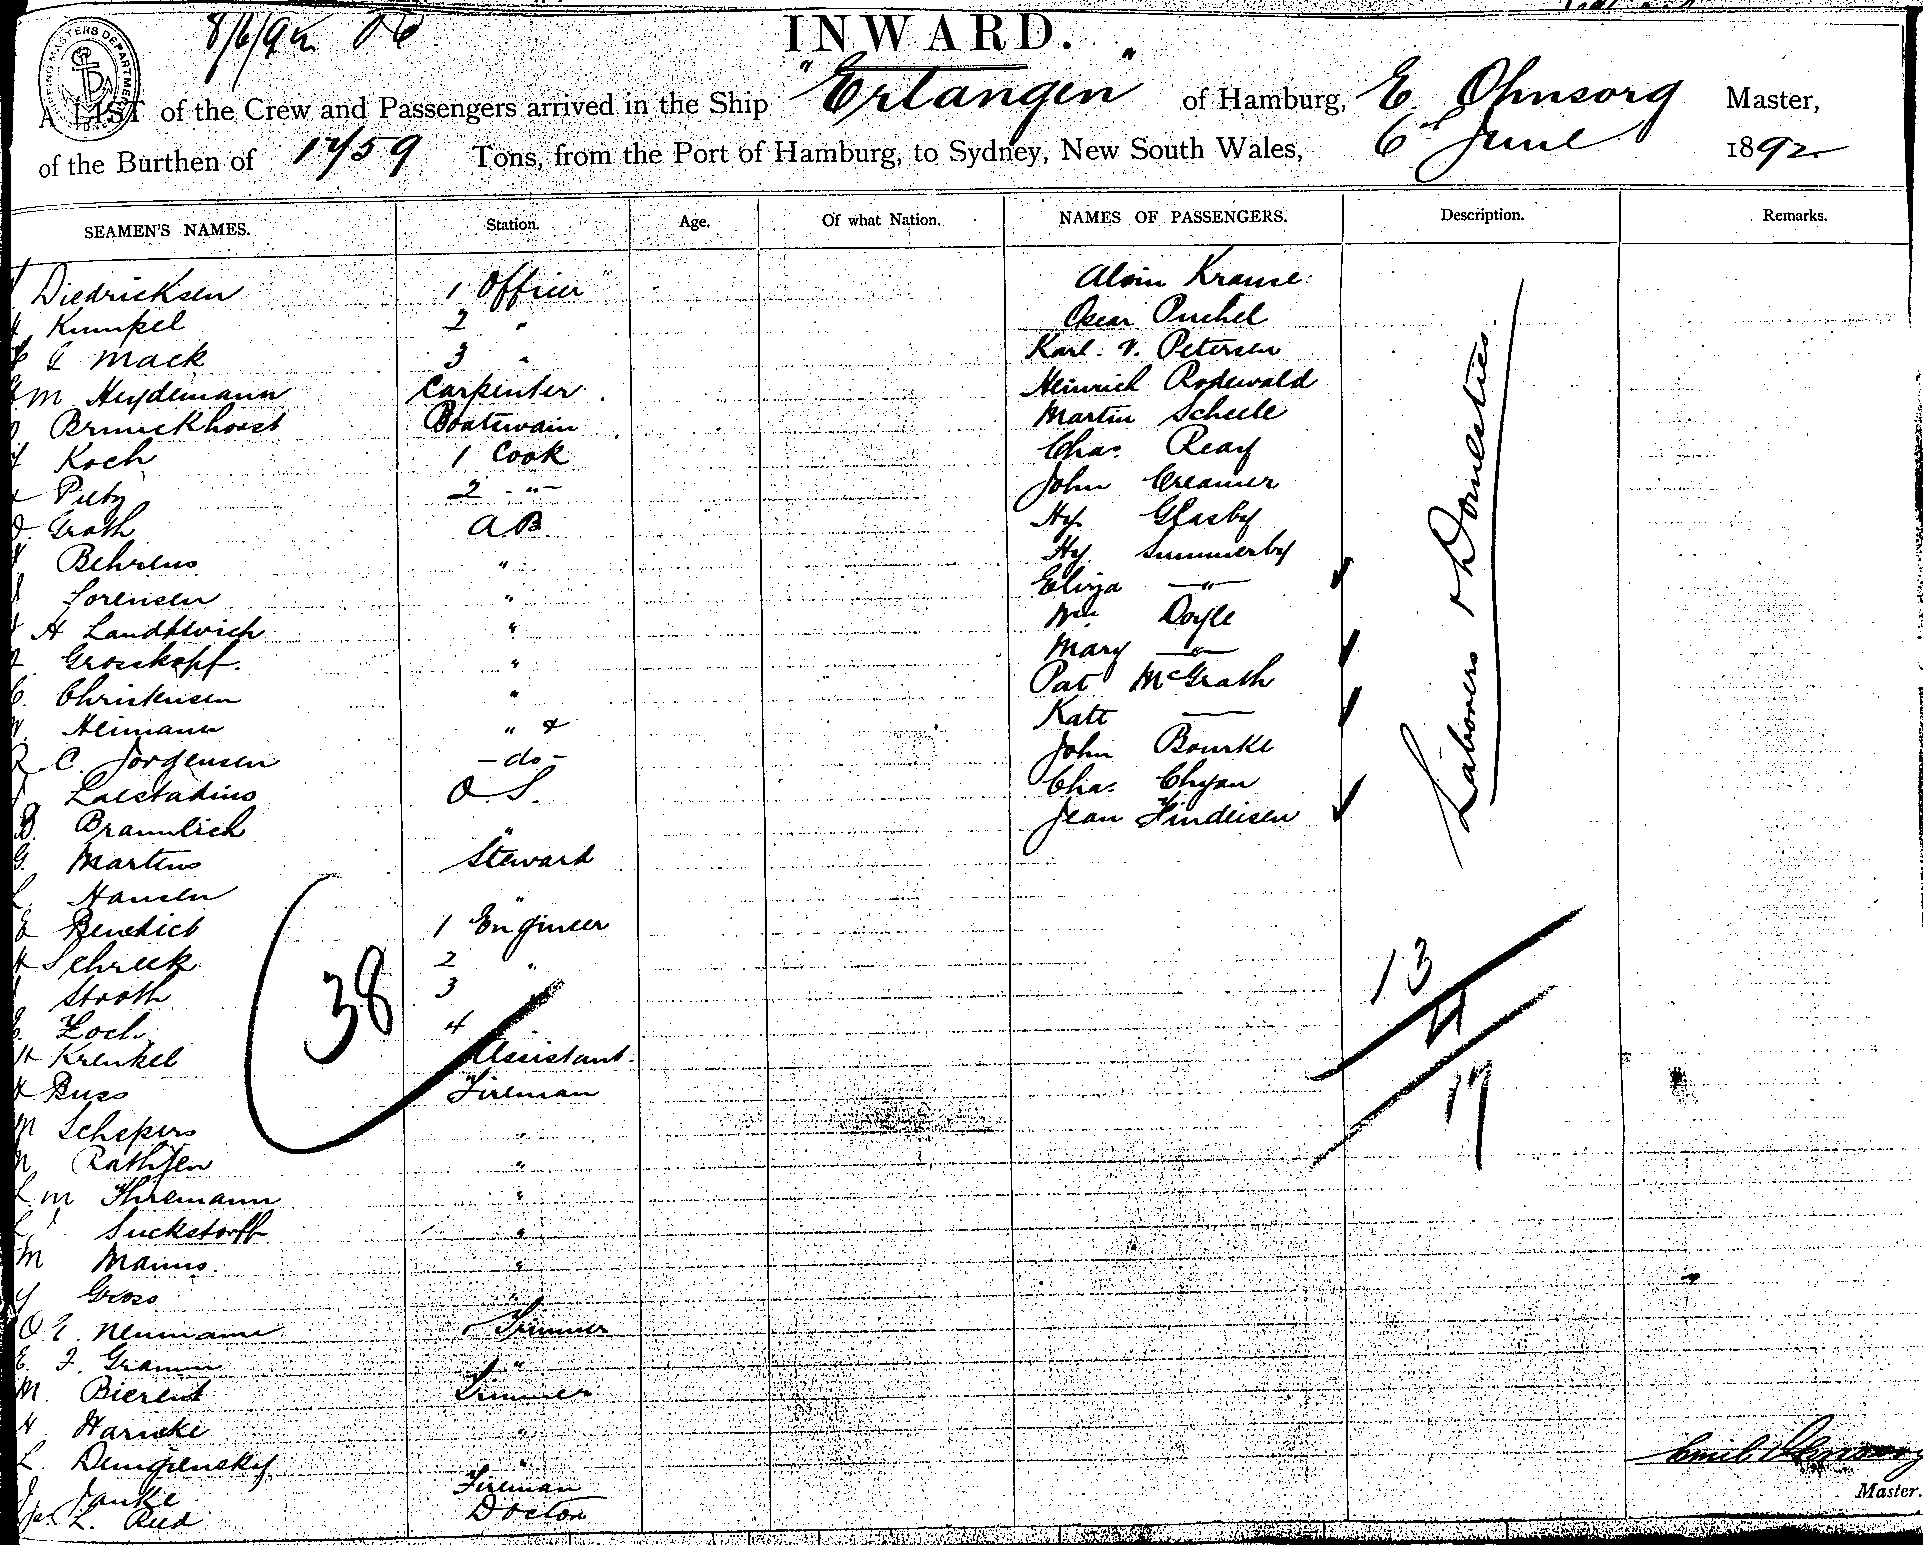 8/6/92
INWARD.
A LIST of the Crew and Passengers arrived in the Ship "Erlangen" of Hamburg, E. Ohnsorg Master,
of the Burthen of 1759 Tons, from the Port of Hamburg, to Sydney, New South Wales, 6th June 1892
SEAMEN'S NAMES. Station. Age. Of what Nation. NAMES OF PASSENGERS. Description. Remarks.
Diedricksen 1 Officer Alvin Krause
Kumpel 2 " Oscar Puchel
G Mack 3 " Karl. V. Petersen
M Heydemann Carpenter Heinrich Rodewald
Brunckhorst Boatswain Martin Scheele
Koch 1 Cook Chas. Reay
Pieby 2 " John Creamer
Groth AB Hy. Glasby
Behrens " Hy. Summerby
Sorensen " Eliza "
H " Wm Doyle
Grosskopf " Mary "
C. Christensen " Pat McGrath
Heimann " Kate —
C. Jorgensen - do - John Bourke
Laestadius O. S. Chas.
B. Braunlich " Jean Findeisen
Labourers & Domestics.
G. Martens Steward
L. Hansen "
E Benedict 1 Engineer
H Schreek 2 "
Stroth 3
Zoch 4
H Krenkel Assistant
H Buss Fireman
38
13
4
17
M Schepers "
N Rathjen "
L M Thiemann "
L Suckstorff "
M Manns "
Y Gross "
O E. Neumann Trimmer
E. F. Gramm "
M. Bierent Trimmer
H Harnske "
L. "
J Janke Fireman
L. Reed Doctor
Emil Ohnsorg
Master.